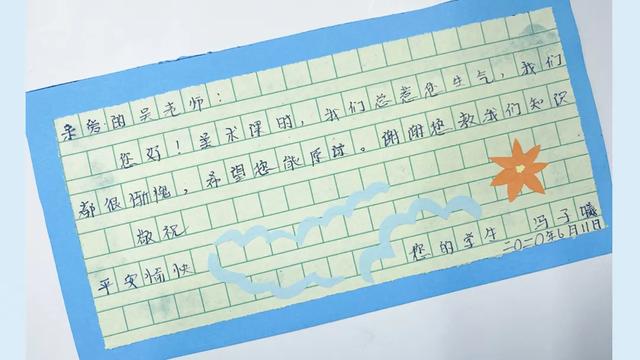 亲爱的吴老师：
您好！美术课时，我们总惹您生气，我们
都很惭愧，希望您能原谅。谢谢您教我们知识
敬祝
平安愉快
您的学生 冯子曦
二〇二〇年6月11日